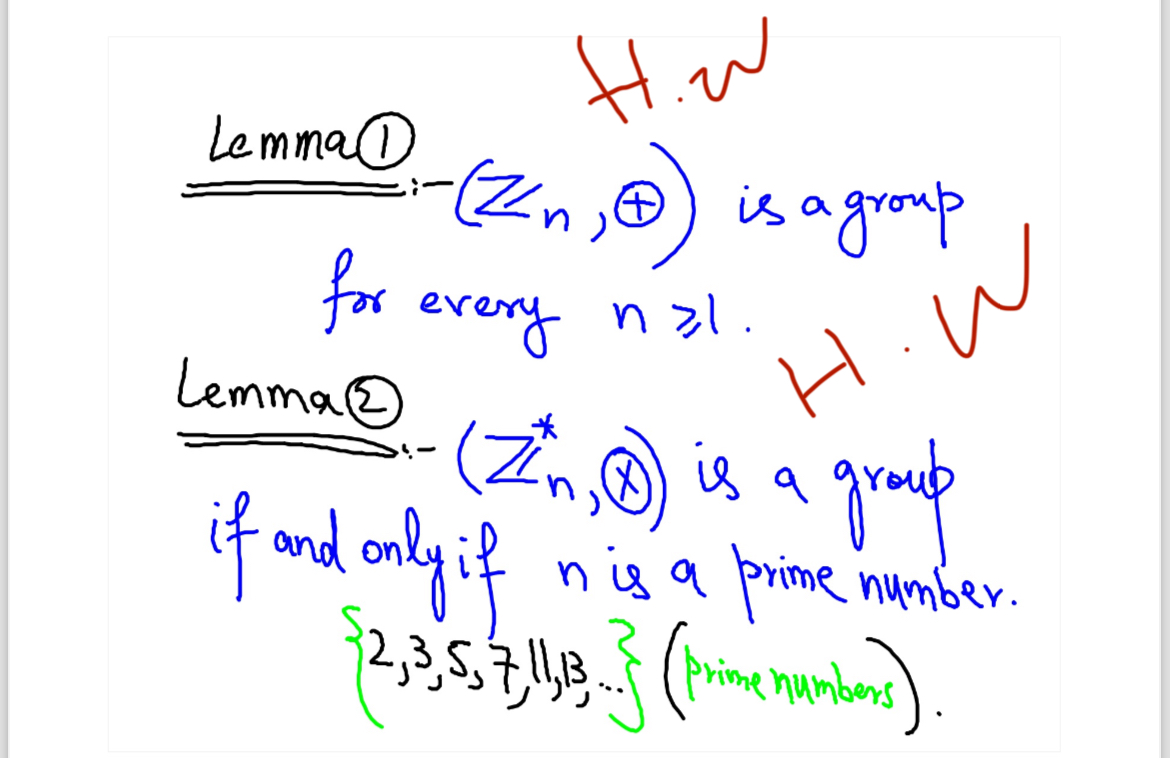 H.W
Lemma ① :- (ℤn, ⊕) is a group
for every n ⩾ 1.
H.W
Lemma ② :- (ℤ*n, ⊗) is a group
if and only if n is a prime number.
{2, 3, 5, 7, 11, 13, ...} (prime numbers).